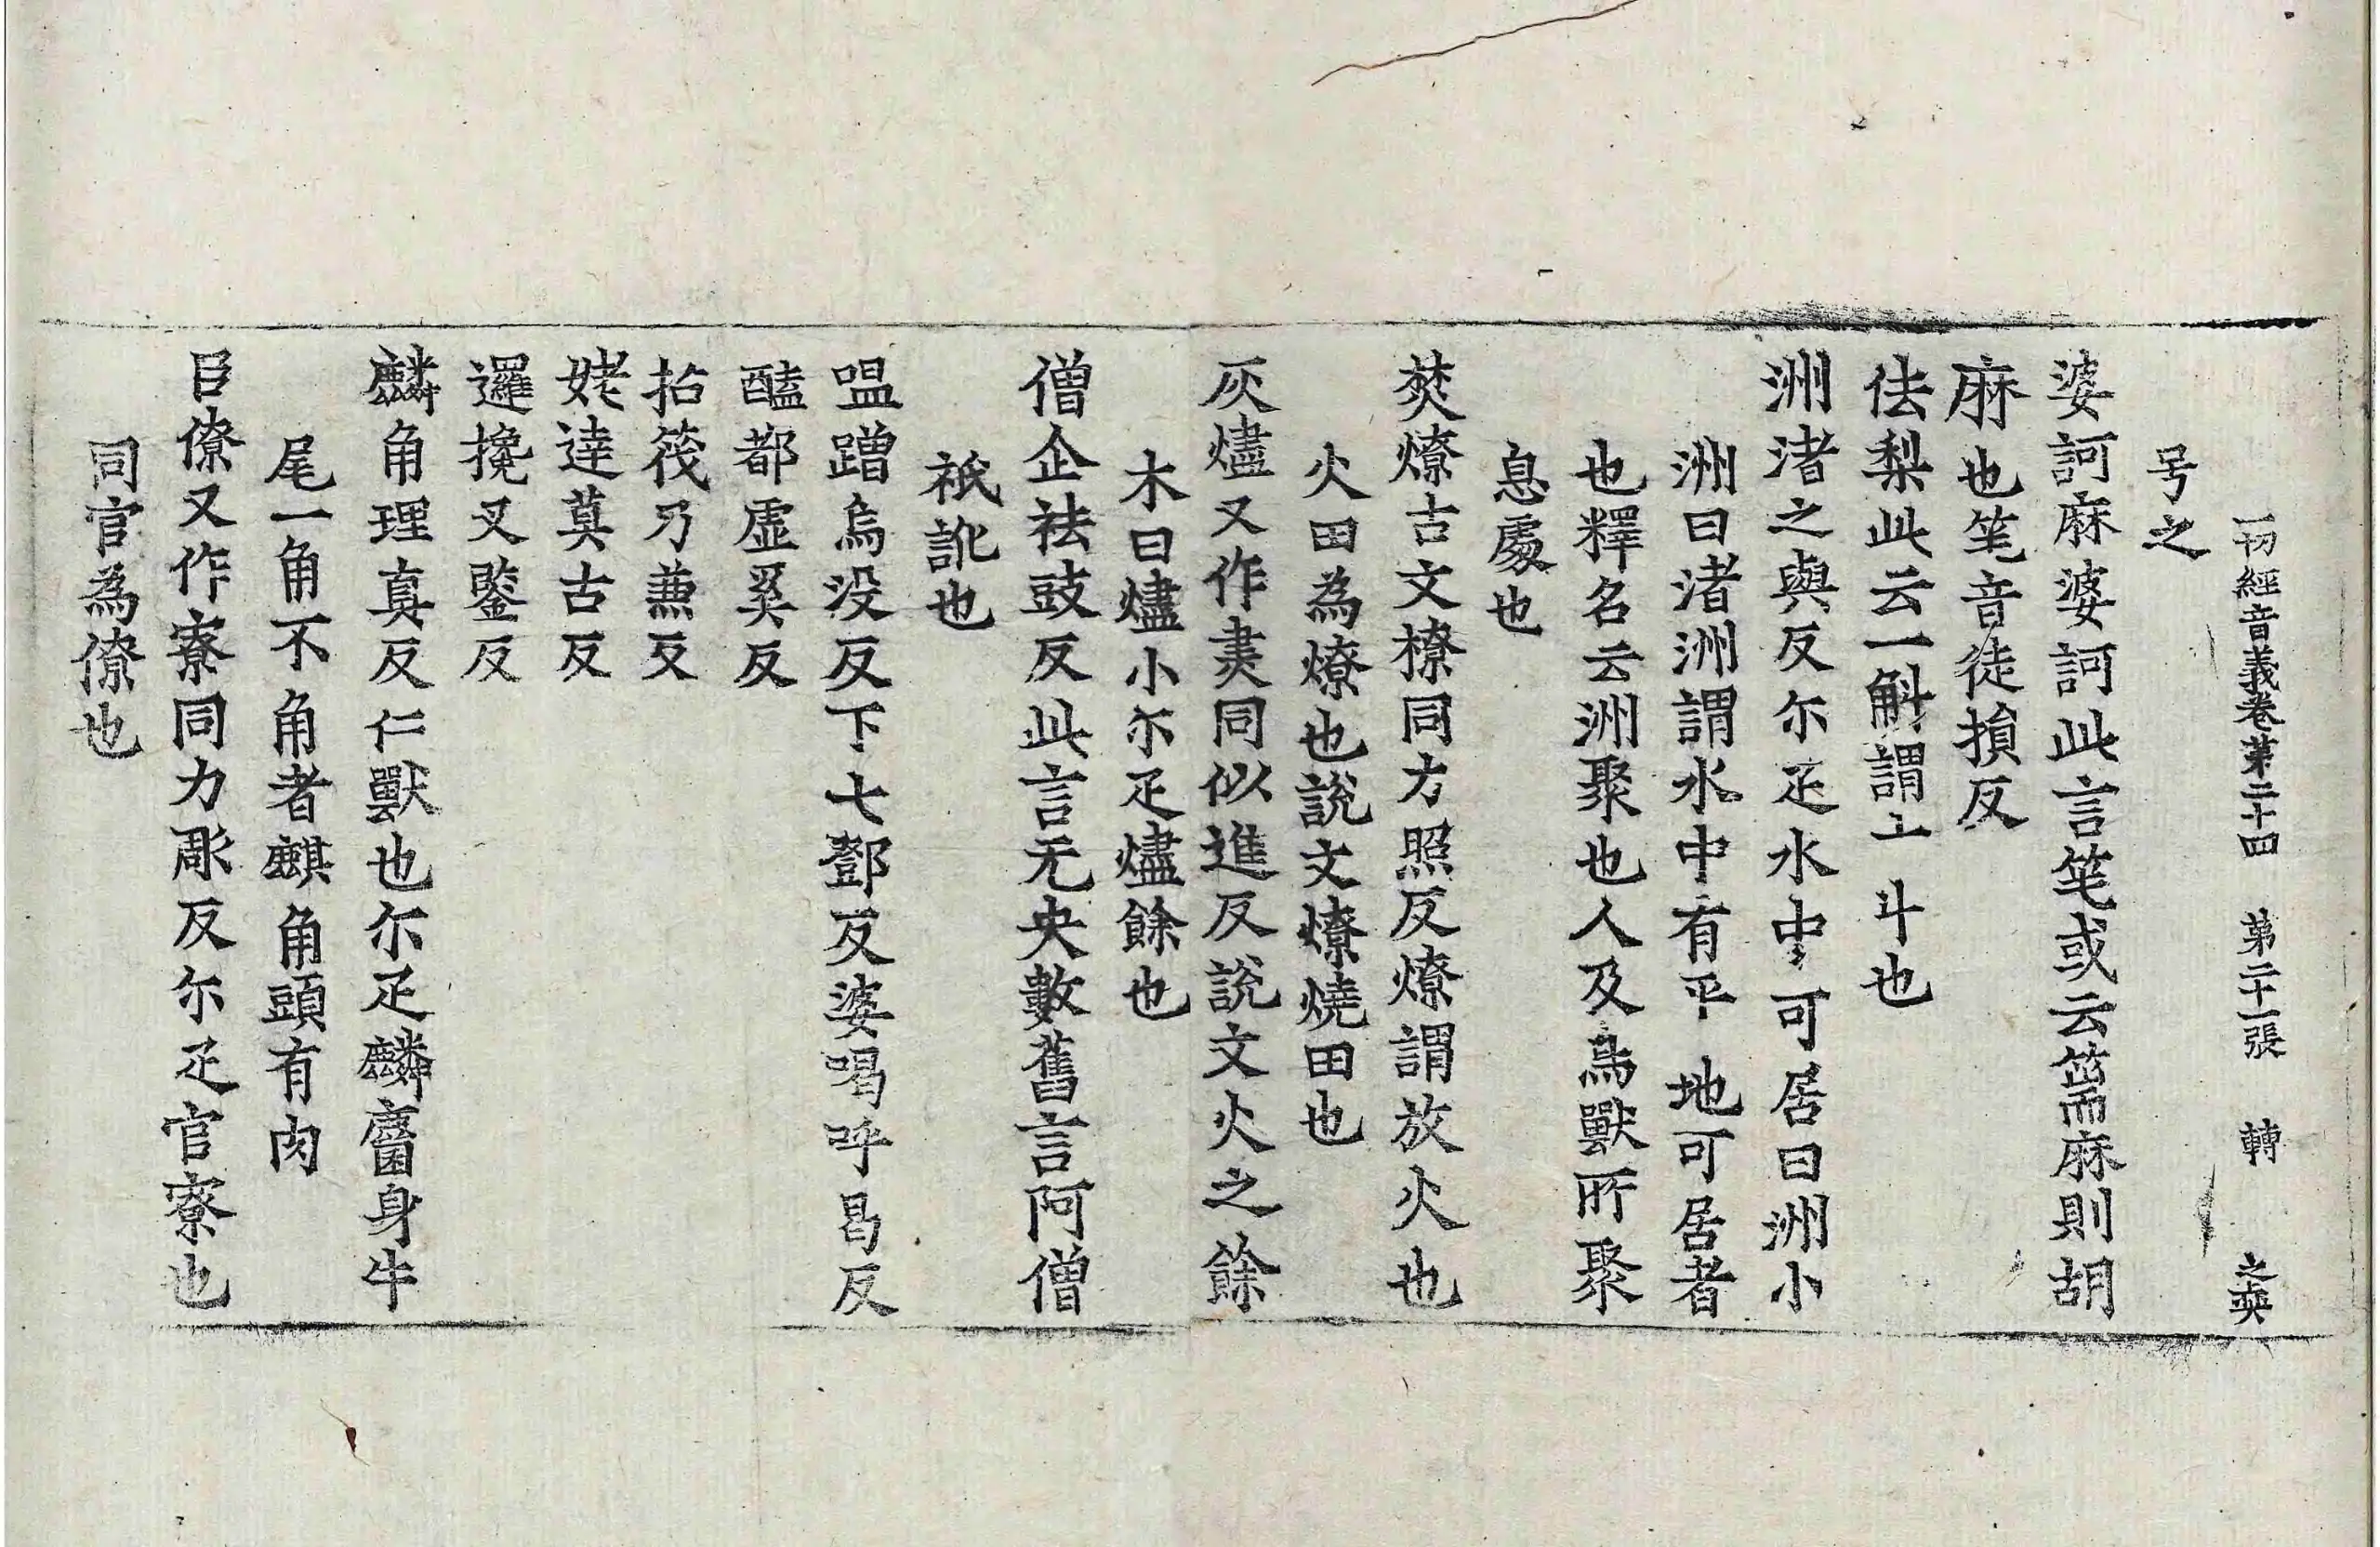 一切經音義卷第二十四 第二十一張 轉 之奕
号之
婆訶麻婆訶此言笔或云篅麻則胡
麻也笔音徒損反
佉梨此云一斛謂上斗也
洲渚之與反尒疋水中可居曰洲小
洲曰渚洲謂水中有平地可居者
也釋名云洲聚也人及鳥獸所聚
息處也
焚燎古文𤊽同力照反燎謂放火也
火田為燎也說文燎燒田也
灰燼又作𦘔同似進反說文火之餘
木曰燼小尒疋燼餘也
僧企袪豉反此言无央數舊言阿僧
祇訛也
嗢蹭烏没反下七鄧反婆喝呼曷反
醯都虛奚反
拈筏乃𠔥反
姥達莫古反
邏攙叉鑒反
麟角理真反仁獸也尒疋麟麕身牛
尾一角不角者麒角頭有肉
臣僚又作寮同力彫反尒疋官寮也
同官為僚也